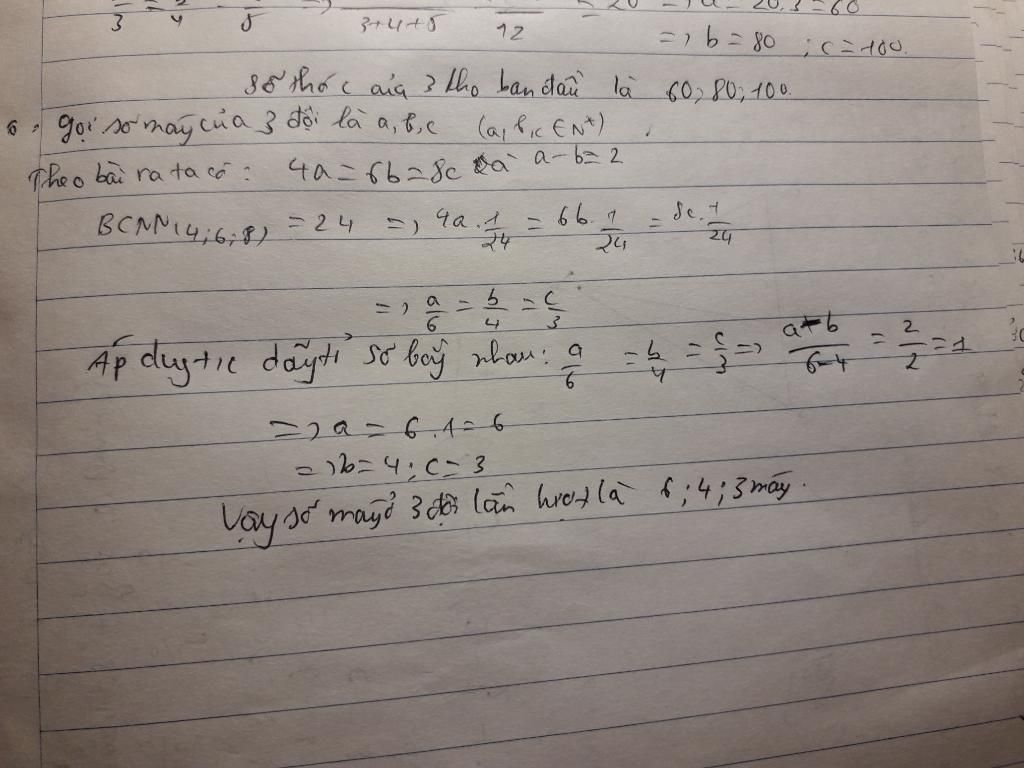 3 = 4 5 => 3+4+5 12 = 20 => a = 20.3 = 60
=> b = 80 ; c = 100.
Số thóc của 3 kho ban đầu là 60; 80; 100.
6, Gọi số máy của 3 đội là a, b, c (a, b, c ∈ N*).
Theo bài ra ta có: 4a = 6b = 8c và a - b = 2
BCNN (4; 6; 8) = 24 => 4a . 1/24 = 6b . 1/24 = 8c . 1/24
=> a/6 = b/4 = c/3
Áp dụng t/c dãy tỉ số bằng nhau: a/6 = b/4 = c/3 => a-b/6-4 = 2/2 = 1
=> a = 6 . 1 = 6
=> b = 4 ; c = 3
Vậy số máy ở 3 đội lần lượt là 6 ; 4 ; 3 máy.